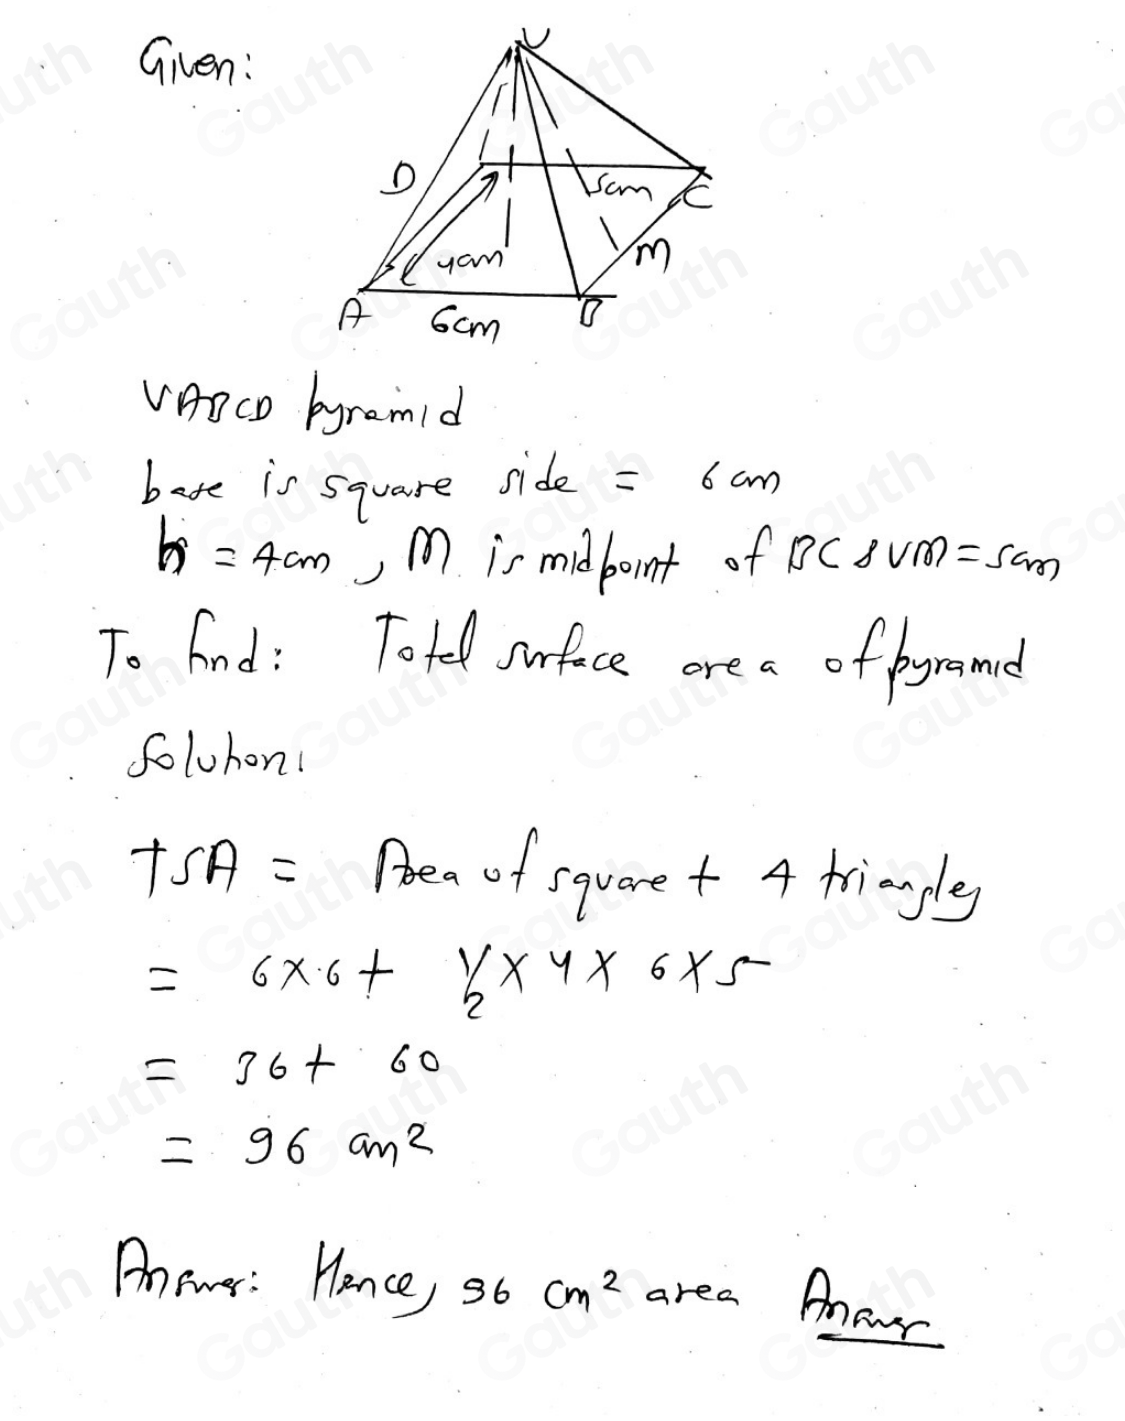 Given:
V
D
5cm
C
4cm
M
A
6cm
B
VABCD pyramid
base is square side = 6 cm
h = 4cm, M is midpoint of BC & VM = 5cm
To find: Total surface area of pyramid
Solution:
TSA = Area of square + 4 triangles
= 6 X 6 + 1/2 X 4 X 6 X 5
= 36 + 60
= 96 cm²
Answer: Hence, 96 cm² area Answer
Gauth